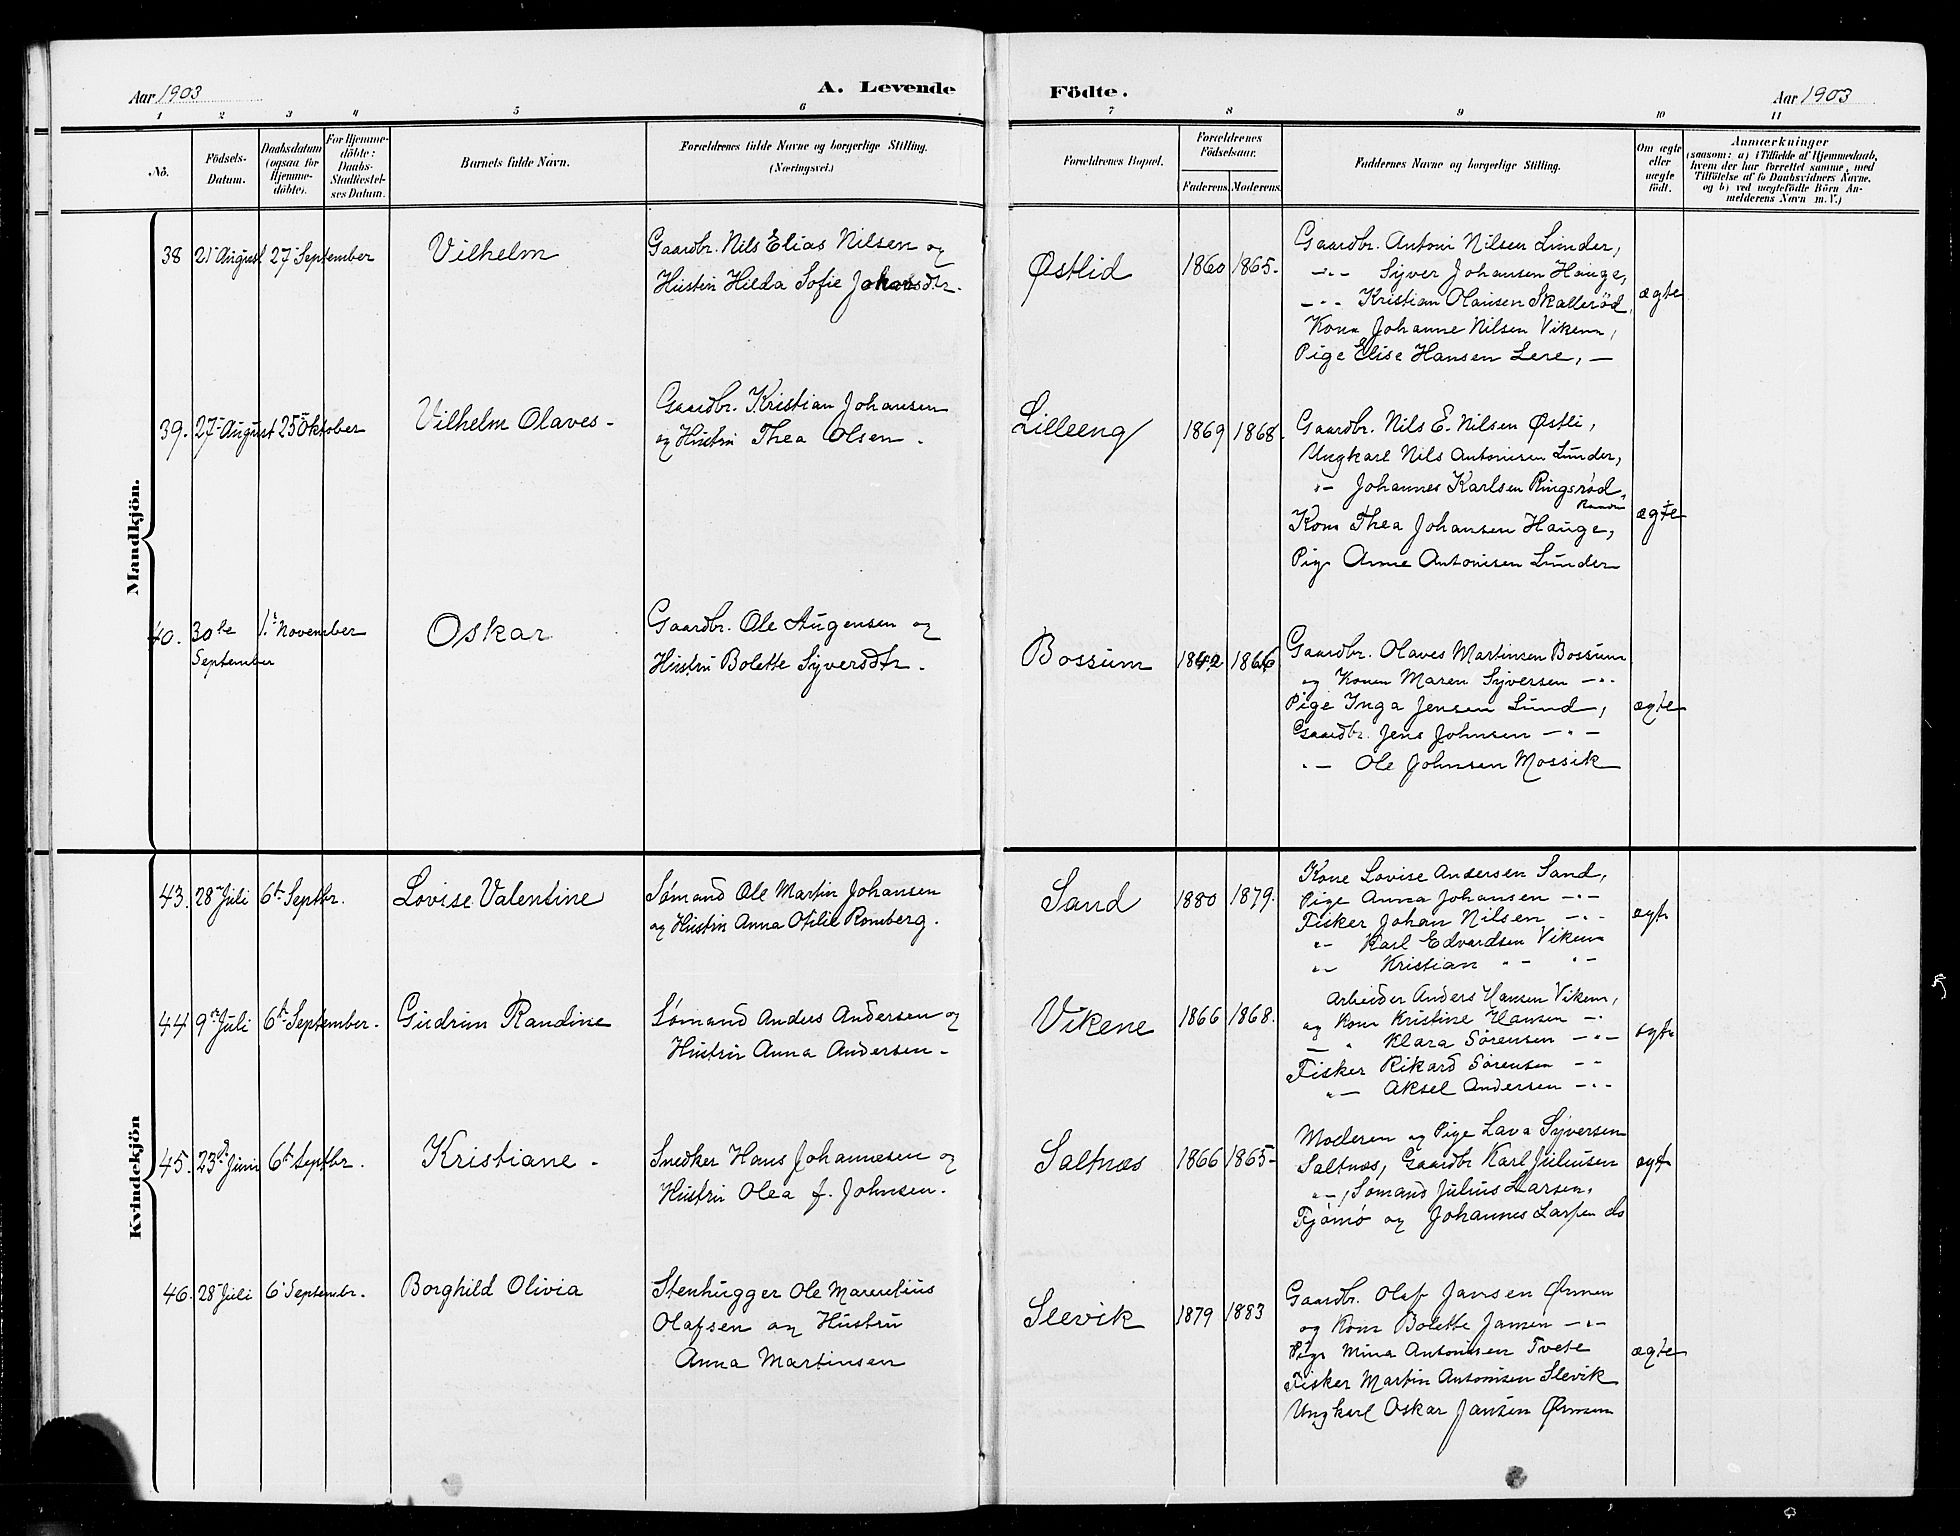 Aar 1903
A. Levende
Födte.
Aar 1903
1 2 3 4 5 6 7 8 9 10 11
No.
Födsels-Datum.
Daabsdatum (ogsaa for Hjemme-döbte).
For Hjemme-döbte: Daabs-Stadfæstel-ses Datum.
Barnets fulde Navn.
Forældrenes fulde Navne og borgerlige Stilling.
(Næringsvei.)
Forældrenes Bopæl.
Forældrenes Födselsaar.
Faderens. Moderens.
Faddernes Navne og borgerlige Stilling.
Om ægte eller uægte födt.
Anmærkninger
(saasom: a) i Tilfælde af Hjemmedaab,
hvem der har forrettet samme, med
Tilföielse af to Daabsvidners Navne,
og b) ved uægtefödte Börn An-
melderens Navn m. V.)
Mandkjön.
38 21 August 27 September Vilhelm
Gaardbr. Nils Elias Nilsen og
Hustru Hilda Sofie Johansdtr.
Østlid 1860 1865.
Gaardbr. Antoni Nilsen Lunder,
-"- Syver Johansen Hauge,
-"- Kristian Olausen Skallerød,
Kone Johanne Nilsen Vikene,
Pige Elise Hansen Lere, —
ægte
39. 27 August 25 Oktober Vilhelm Olaves -
Gaardbr. Kristian Johansen
og Hustru Thea Olsen.
Lilleeng 1869 1868.
Gaardbr. Nils E. Nilsen Østli,
Ungkarl Nils Antonisen Lunder,
"- Johannes Karlsen Ringsrød,
Kone Thea Johansen Hauge,
Pige Anne Antonisen Lunder
ægte
40. 30te September 1. November Oskar
Gaardbr. Ole Augensen og
Hustru Bolette Syversdtr.
Bossum 1842 1866
Gaardbr. Olaves Martinsen Bossum
og Konen Maren Syversen -"-
Pige Inga Jensen Lund,
Gaardbr. Jens Johnsen -"-
"- Ole Johnsen Mossik
ægte
Kvindekjön
43. 28 Juli 6t Septbr. Lovise Valentine
Sømand Ole Martin Johansen
og Hustru Anna Otilie Romberg.
Sand 1880 1879.
Kone Lovise Andersen Sand,
Pige Anna Johansen -"-
Fisker Johan Nilsen -"-
"- Karl Edvardsen Vikene
"- Kristian "- "-
ægte
44 9 Juli 6t September. Gudrun Randine
Sømand Anders Andersen og
Hustru Anna Andersen -
Vikene 1866 1868.
Arbeider Anders Hansen Vikene,
og Kone Kristine Hansen -"
— " Klara Sørensen -"-
Fisker Rikard Sørensen -"-
"- Aksel Andersen -"-
ægte
45. 23d Juni 6t Septbr. Kristiane -
Snedker Hans Johannesen og
Hustru Olea f. Johnsen.
Saltnæs 1866 1865 -
Moderen og Pige Lava Syversen
Saltnæs, Gaardbr Karl Juliusen
"-, Sømand Julius Larsen,
Tjømø og Johannes Larsen do
ægte
46. 28 Juli 6 Septembr. Borghild Olivia
Stenhugger Ole Marentius
Olafsen og Hustru
Anna Martinsen
Slevik 1879 1883
Gaardbr. Olaf Jansen Ørmen
og Kone Bolette Jansen -"-
Pige Mina Antonisen Tvete
Fisker Martin Antonisen Slevik
Ungkarl Oskar Jansen Ørmen
ægte